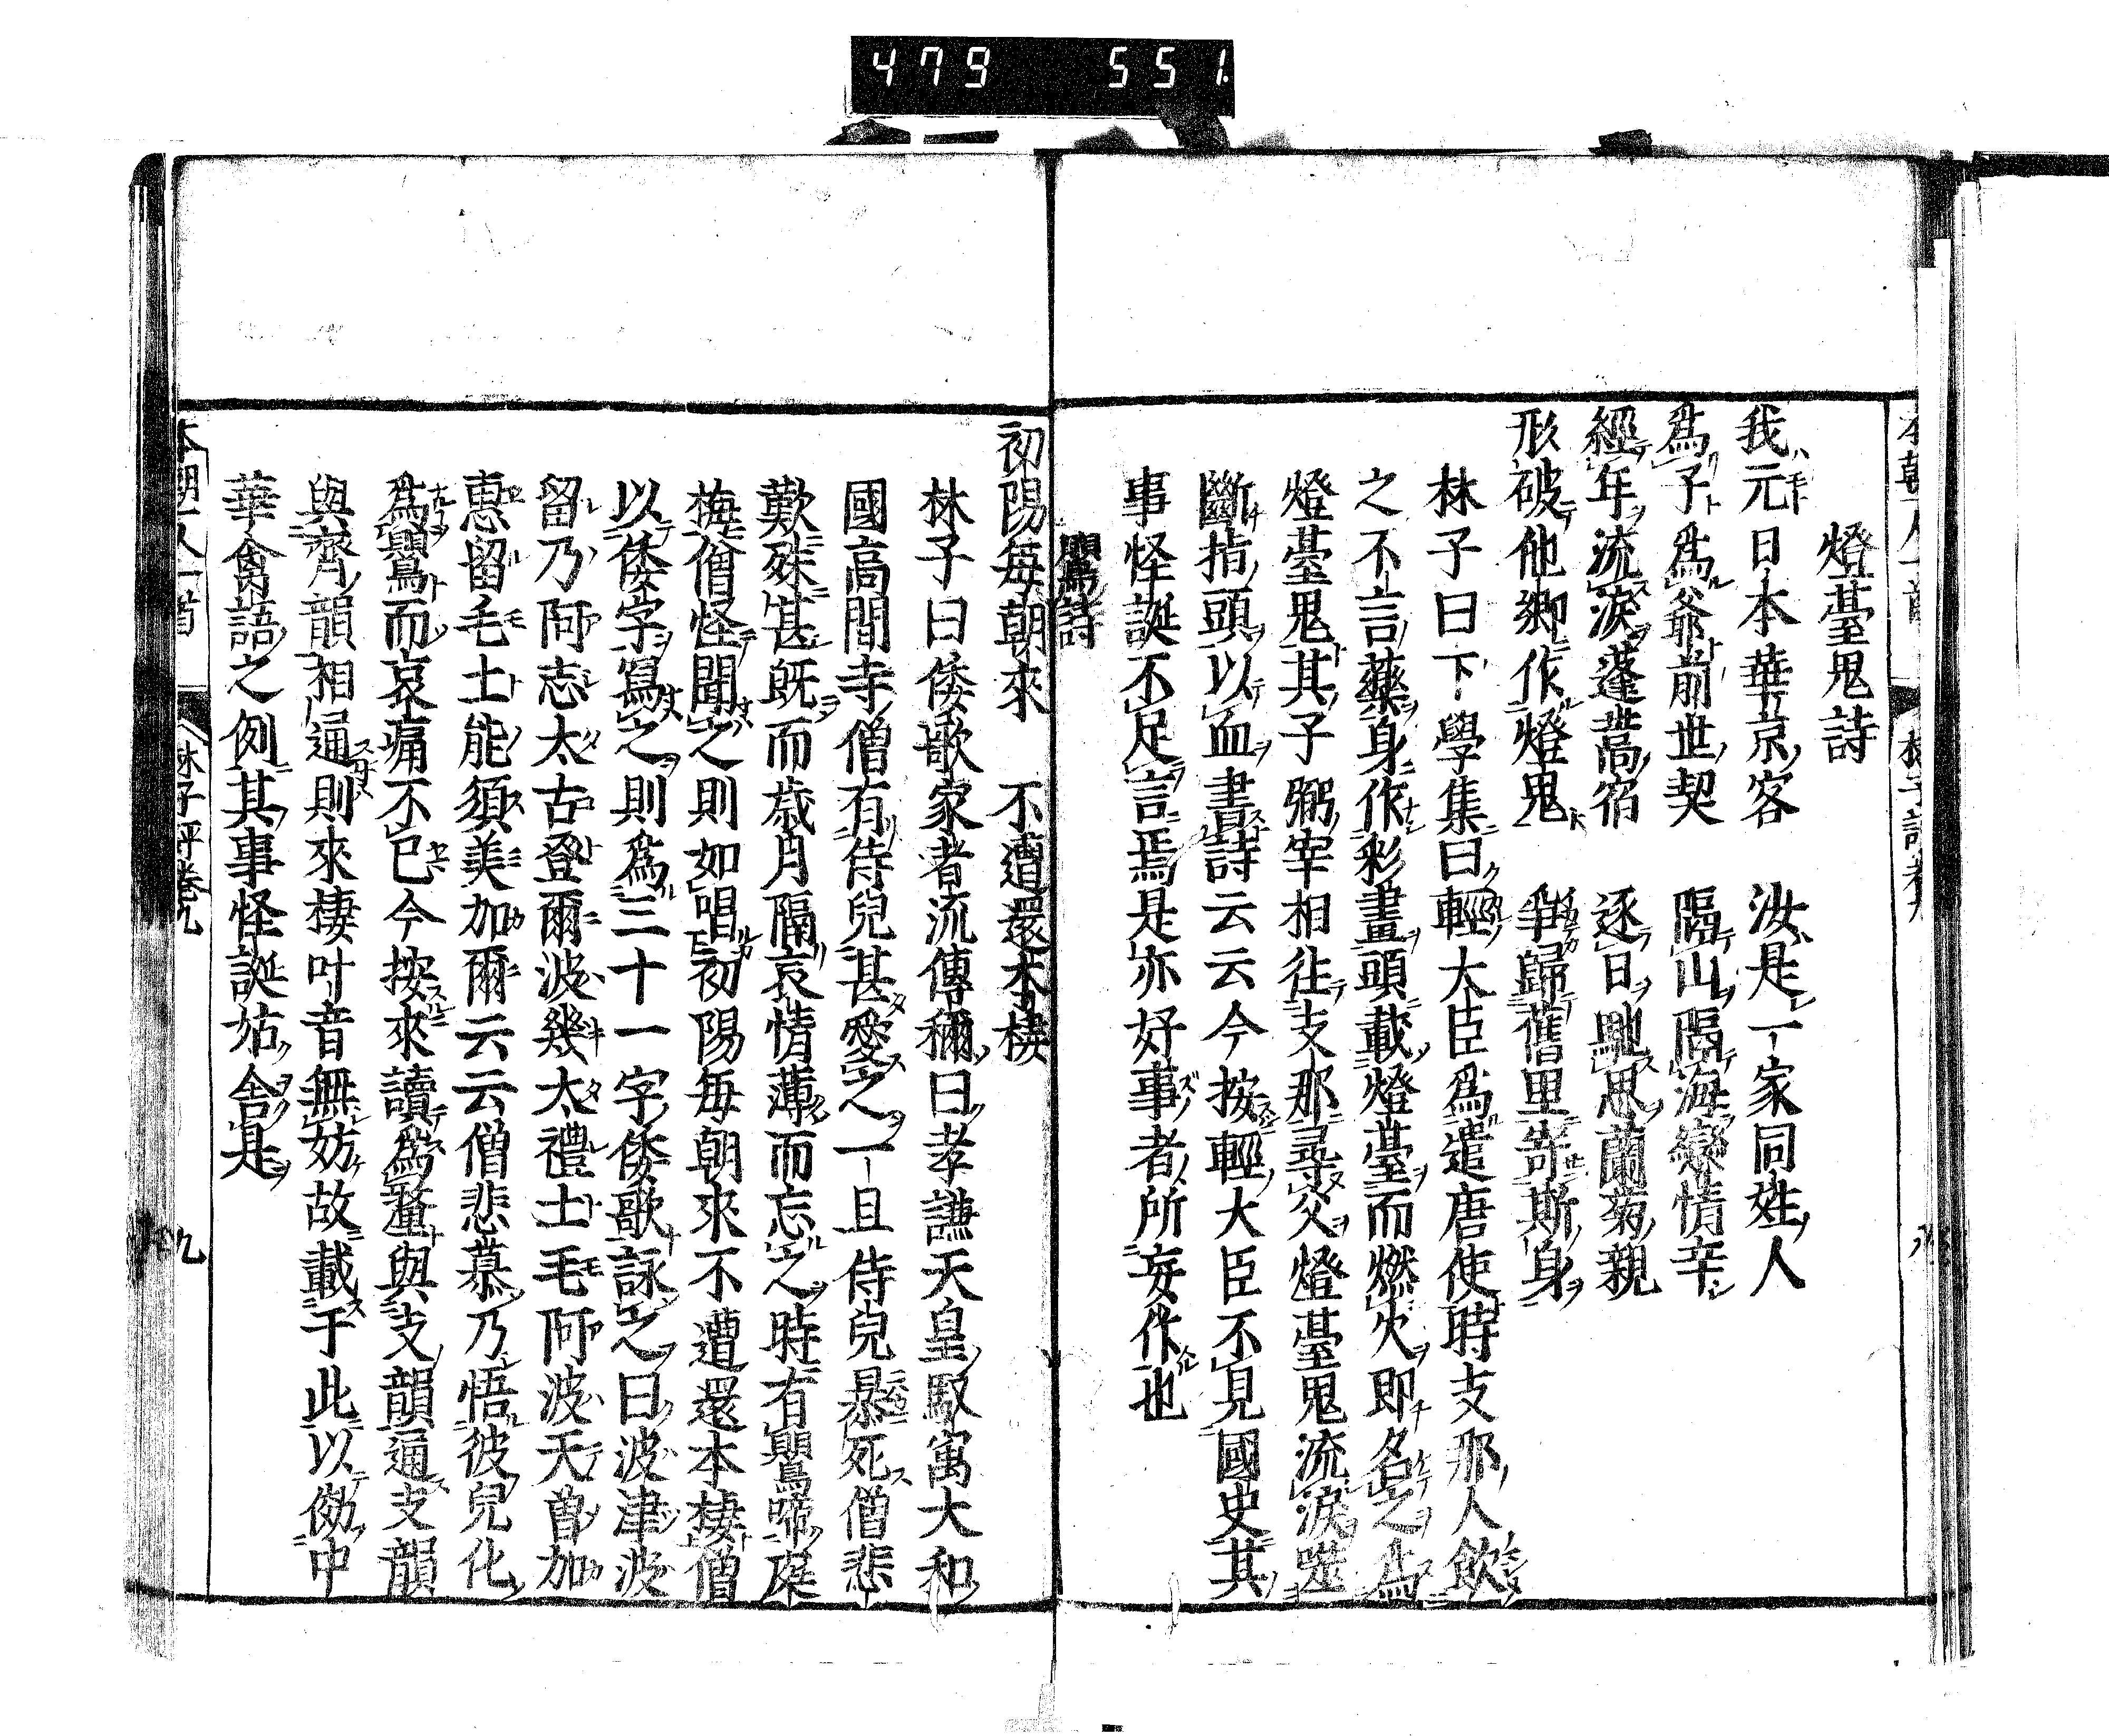 479 551.
燈臺鬼詩
我元日本華京客　汝是一家同姓人
爲子爲爺前世契　隔山隔海戀情辛
經年流淚蓬蒿宿　逐日馳思蘭菊親
形破他鄉作燈鬼　爭歸舊里寄斯身
林子曰下學集曰輕大臣爲遣唐使時支那人飲
之不言藥身作彩畫頭載燈臺而燃火即名之爲
燈臺鬼其子弼宰相往支那尋父燈臺鬼流淚噬
斷指頭以血書詩云云今按輕大臣不見國史其
事怪誕不足言焉是亦好事者所妄作也
鸎詩
初陽毎朝來　不遭還本棲
林子曰倭歌家者流傳稱曰孝謙天皇馭寓大和
國高間寺僧有侍兒甚愛之一旦侍兒暴死僧悲
歎殊甚既而歲月隔哀情薄而忘之時有鸎啼庭
梅僧怪聞之則如唱初陽毎朝來不遭還本棲僧
以倭字寫之則爲三十一字倭歌詠之曰波津波
留乃阿志太古登爾波幾太禮士毛阿波天曽加
惠留毛土能須美加爾云云僧悲慕乃悟彼兒化
爲鸎而哀痛不已今按來讀爲釐與支韻通支韻
與齊韻相通則來棲叶音無妨故載于此以傚中
華禽語之例其事怪誕姑舍是
本朝一人一首
林子評卷九
九